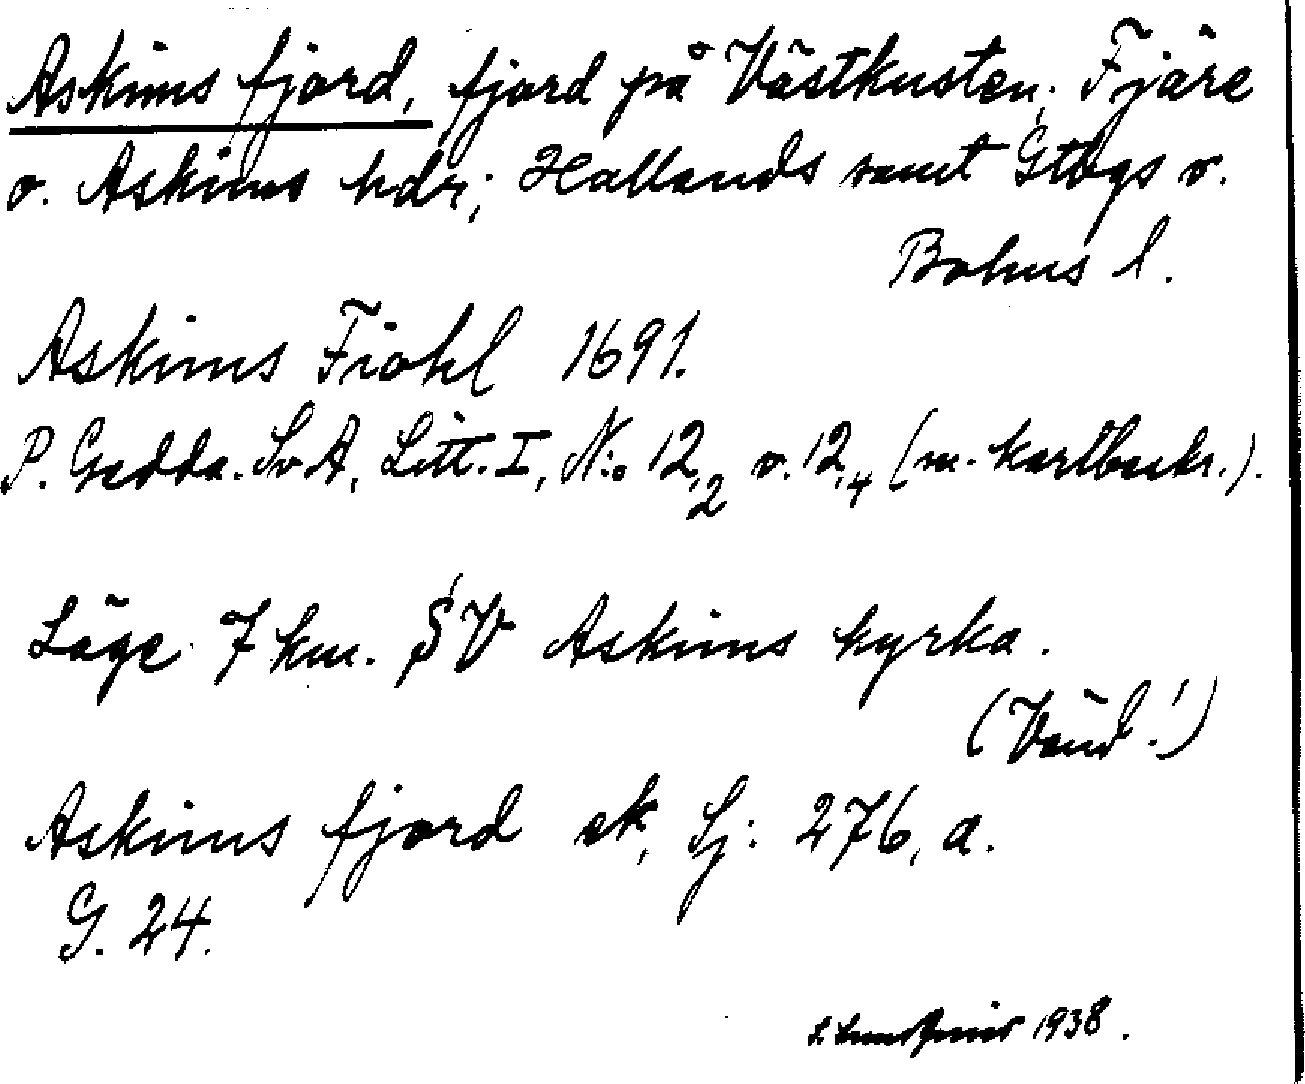 Askims fjord, fjord på Västkusten; Fjäre
o. Askims hdr; Hallands samt Gtbgs o.
Bohus l.
Askims Fiohl 1691.
P. Gedda. SvA, Litt. I, N:o 12,2 o. 12,4 (m. kartbeskr.).
Läge 7 km. SV Askims kyrka.
(Vänd!)
Askims fjord ek, Sj: 276, a.
G. 24.
1938.